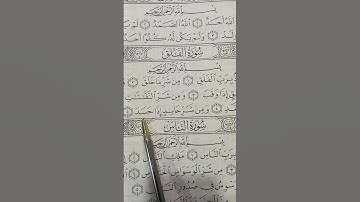 بِسْمِ اللَّهِ الرَّحْمَٰنِ الرَّحِيمِ
اللَّهُ أَحَدٌ ١ اللَّهُ الصَّمَدُ ٢ لَمْ
لَدْ ٣ وَلَمْ يَكُن لَّهُ كُفُوًا أَحَدٌ
سُورَةُ الْفَلَقِ
بِسْمِ اللَّهِ الرَّحْمَٰنِ الرَّحِيمِ
بِرَبِّ الْفَلَقِ ١ مِن شَرِّ مَا خَلَقَ
قٍ إِذَا وَقَبَ ٣ وَمِن شَرِّ النَّفَّاثَاتِ
دِ ٤ وَمِن شَرِّ حَاسِدٍ إِذَا حَسَدَ ٥
سُورَةُ النَّاسِ
بِسْمِ اللَّهِ الرَّحْمَٰنِ الرَّحِيمِ
بِرَبِّ النَّاسِ ١ مَلِكِ النَّاسِ
مِن شَرِّ الْوَسْوَاسِ
سْوِسُ فِي صُدُورِ النَّاسِ